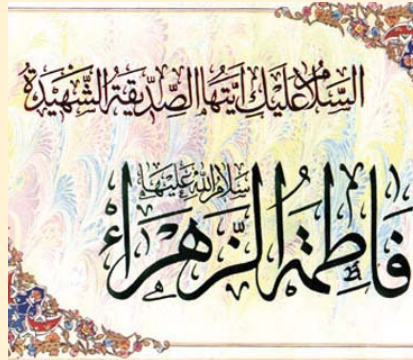 السَّلَامُ عَلَيْكِ أَيَّتُهَا الصِّدِّيقَةُ الشَّهِيدَةُ
سَلَامُ اللهِ عَلَيْهَا
فَاطِمَةُ الزَّهْرَاءُ